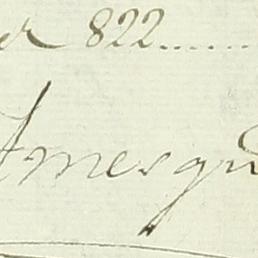 822......
Amesqu